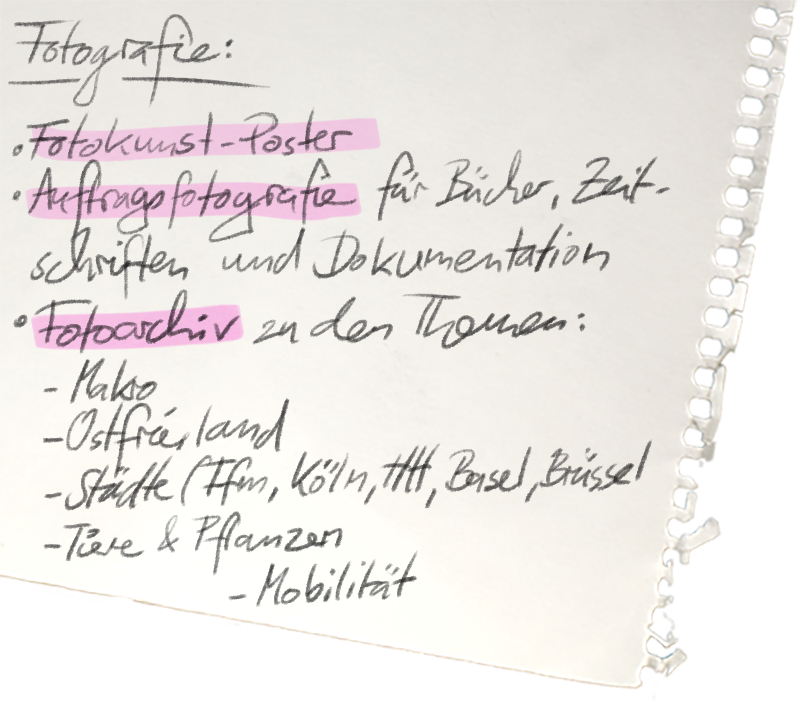 Fotografie:
• Fotokunst-Poster
• Auftragsfotografie für Bücher, Zeit-
schriften und Dokumentation
• Fotoarchiv zu den Themen:
- Makro
- Ostfriesland
- Städte (Ffm, Köln, HH, Basel, Brüssel
- Tiere & Pflanzen
- Mobilität